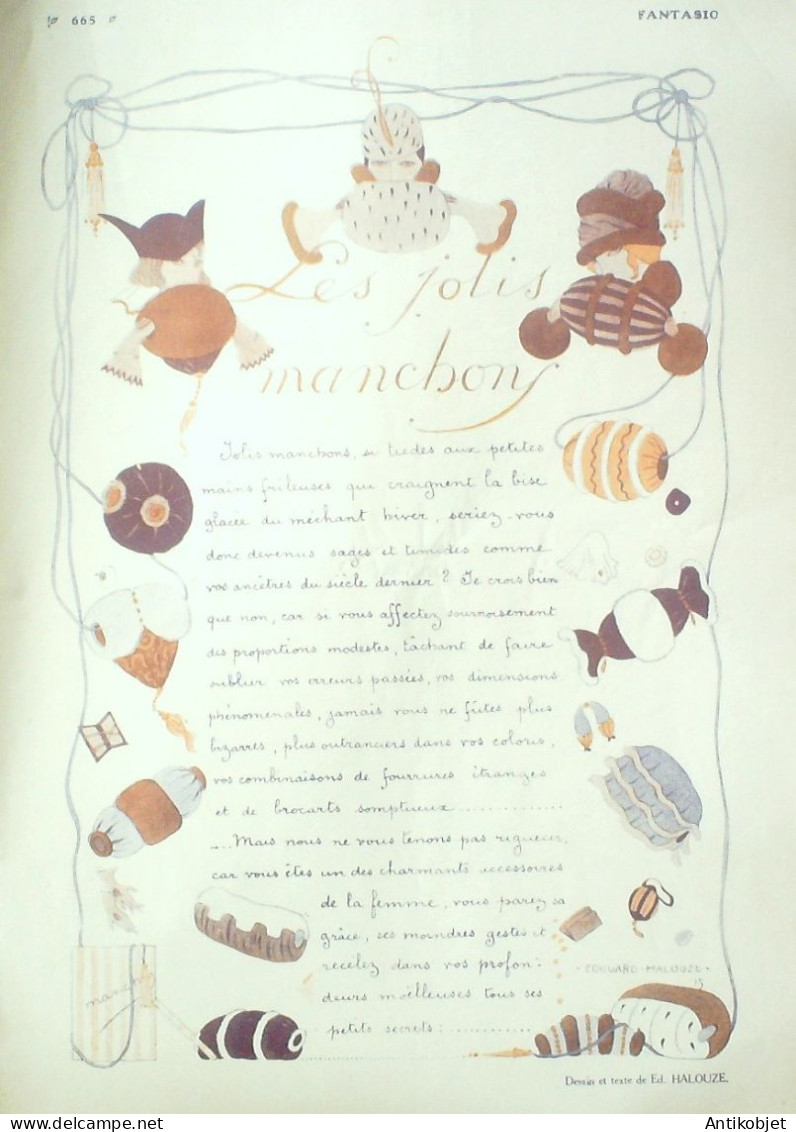 665
FANTASIO
Les jolis
manchons
Jolis manchons, si tièdes aux petites
mains frileuses qui craignent la bise
glacée du méchant hiver, seriez-vous
donc devenus sages et timides comme
vos ancêtres du siècle dernier? Je crois bien
que non, car si vous affectez sournoisement
des proportions modestes, tâchant de faire
oublier vos erreurs passées, vos dimensions
phénoménales, jamais vous ne fûtes plus
bizarres, plus outranciers dans vos coloris,
vos combinaisons de fourrures étranges
et de brocarts somptueux............
....Mais nous ne vous tenons pas rigueur,
car vous êtes un des charmants accessoires
de la femme, vous parez sa
grâce, ses moindres gestes et
recélez dans vos profon-
deurs moëlleuses tous ses
petits secrets:............
manchons
• EDOUARD-HALOUZE •
15
Dessin et texte de Ed. HALOUZE.
www.antikobjet.com
Antikobjet